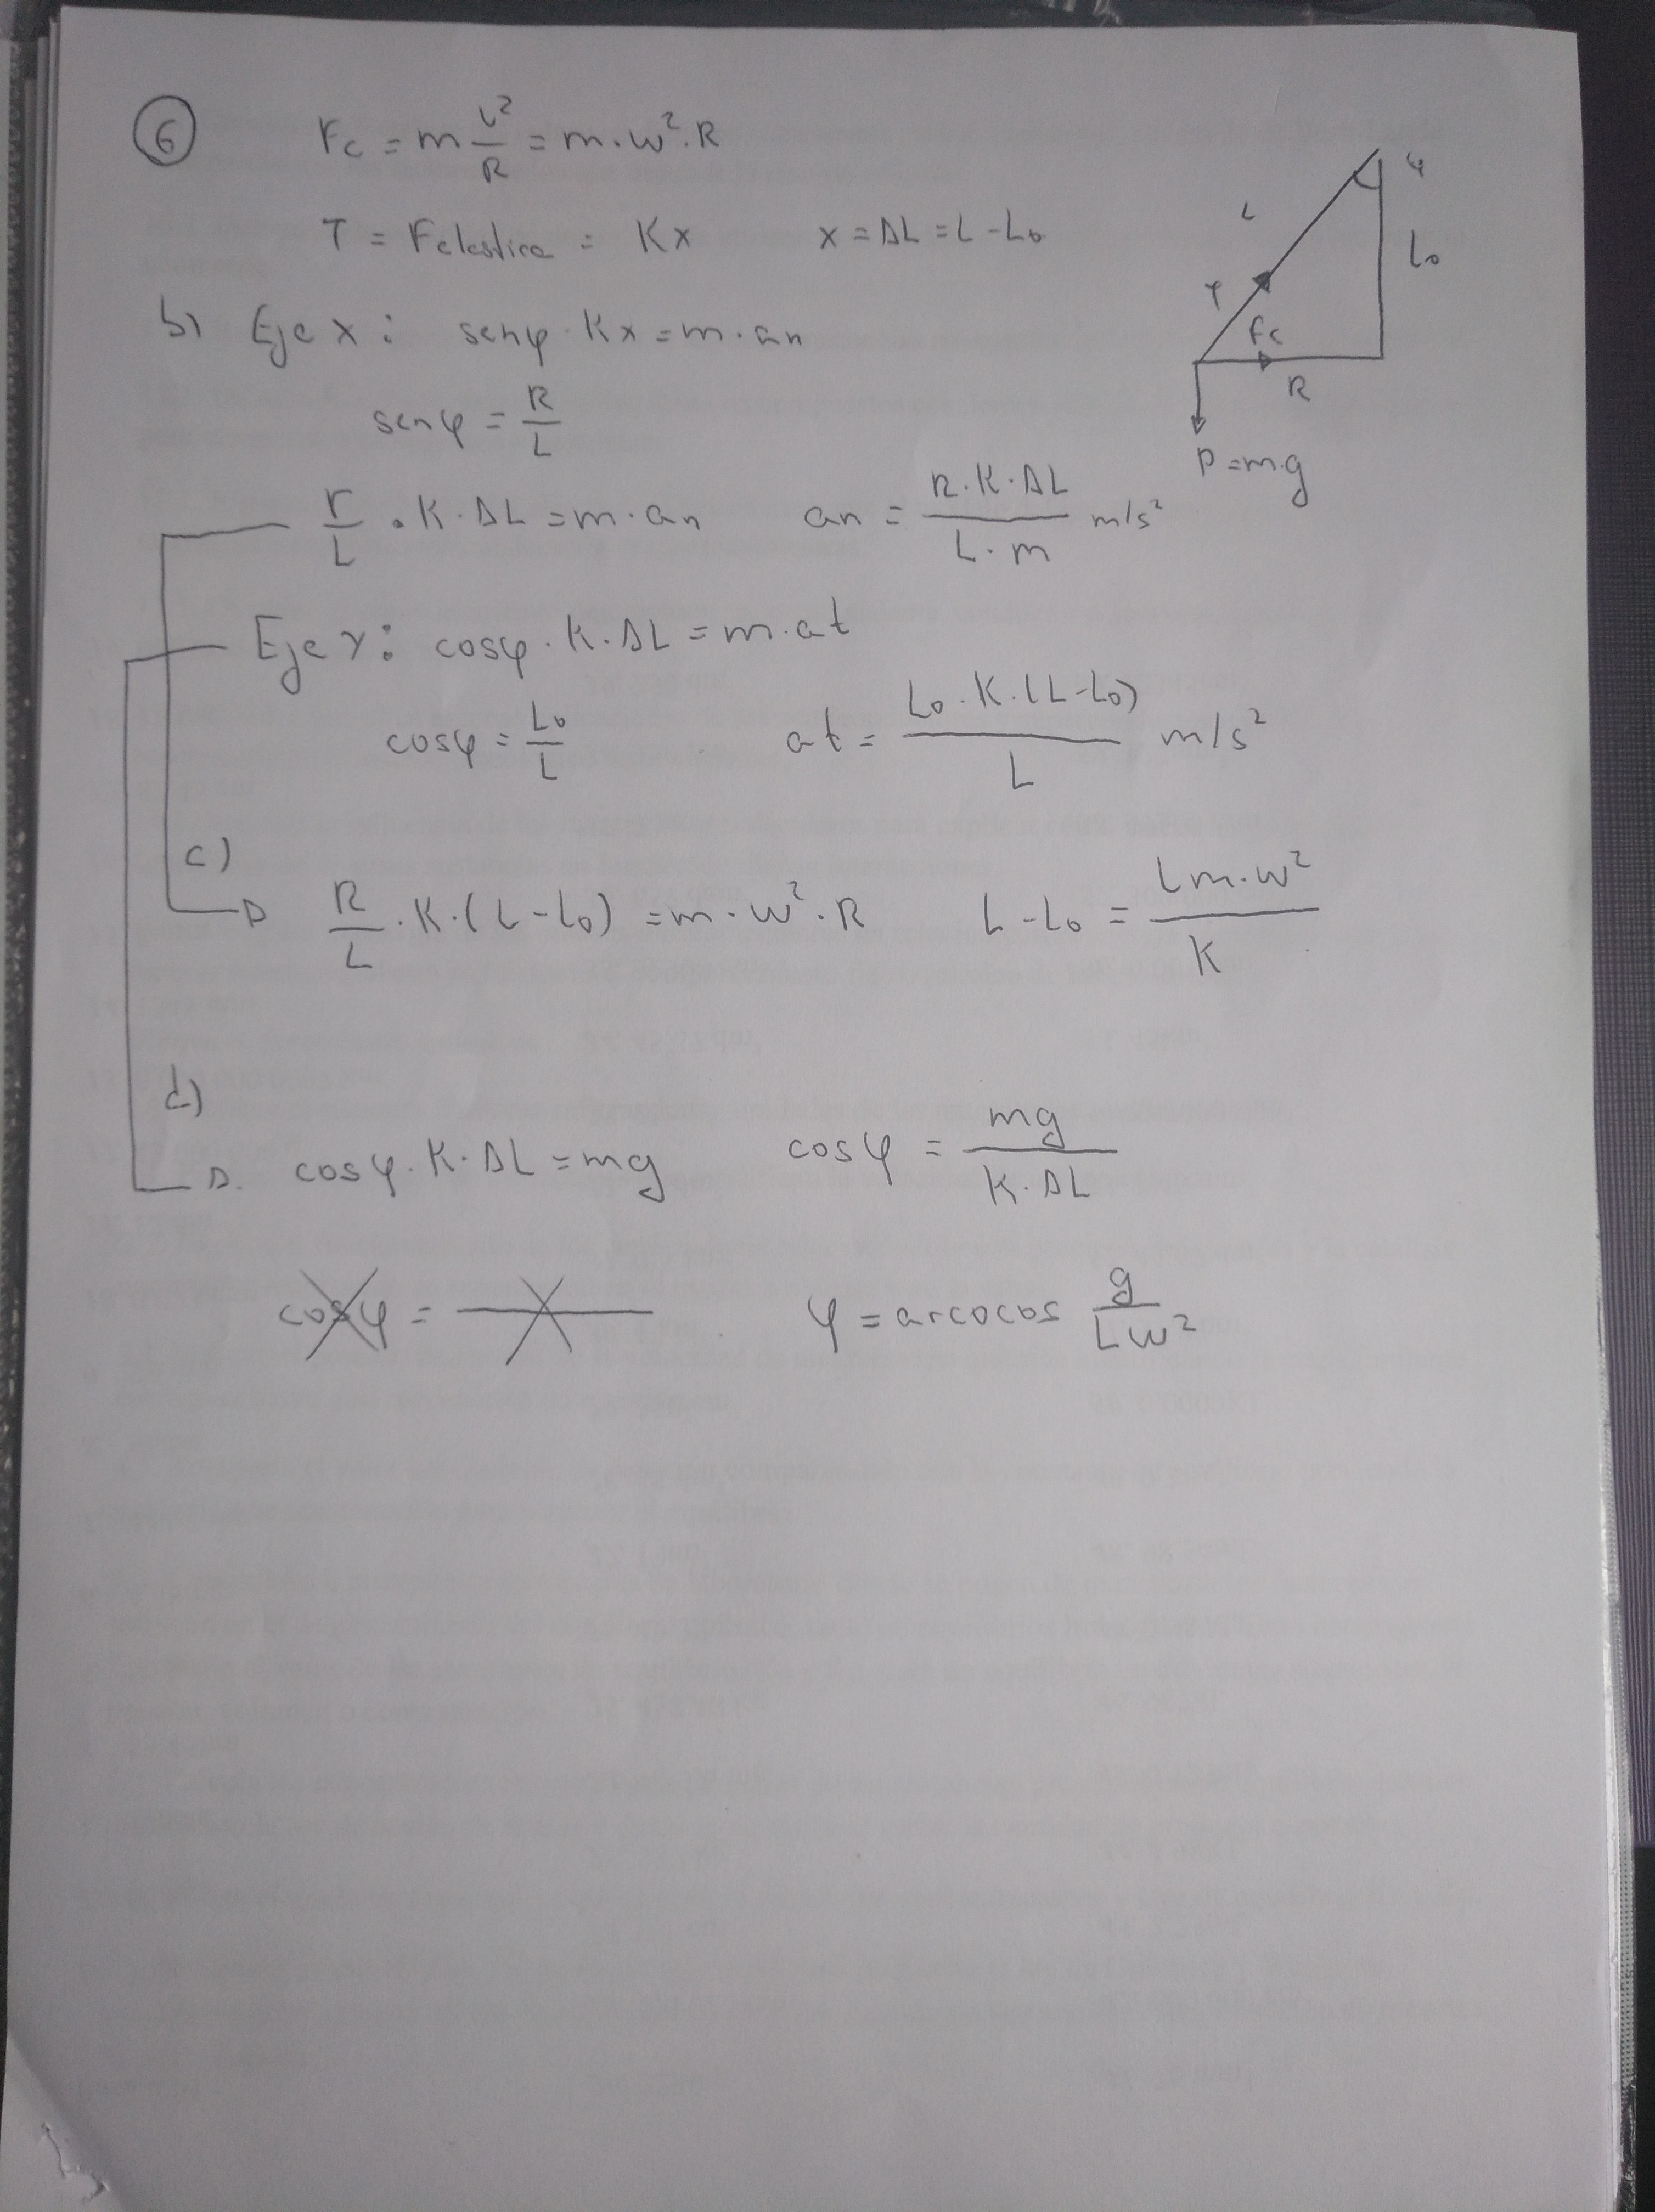 6 Fc = m v²/R = m·w²·R
T = Felastica = Kx x = ΔL = L-Lo
φ
L
Lo
T
Fc
R
P=m·g
b) Eje x: senφ·Kx = m·an
senφ = R/L
r/L · K·ΔL = m·an an = R·K·ΔL / L·m m/s²
Eje Y: cosφ·K·ΔL = m·at
cosφ = Lo/L at = Lo·K·(L-Lo) / L m/s²
c)
R/L ·K·(L-Lo) = m·w²·R L-Lo = Lm·w² / K
d)
cosφ·K·ΔL = mg cosφ = mg / K·ΔL
cosφ = φ = arcocos g / Lw²